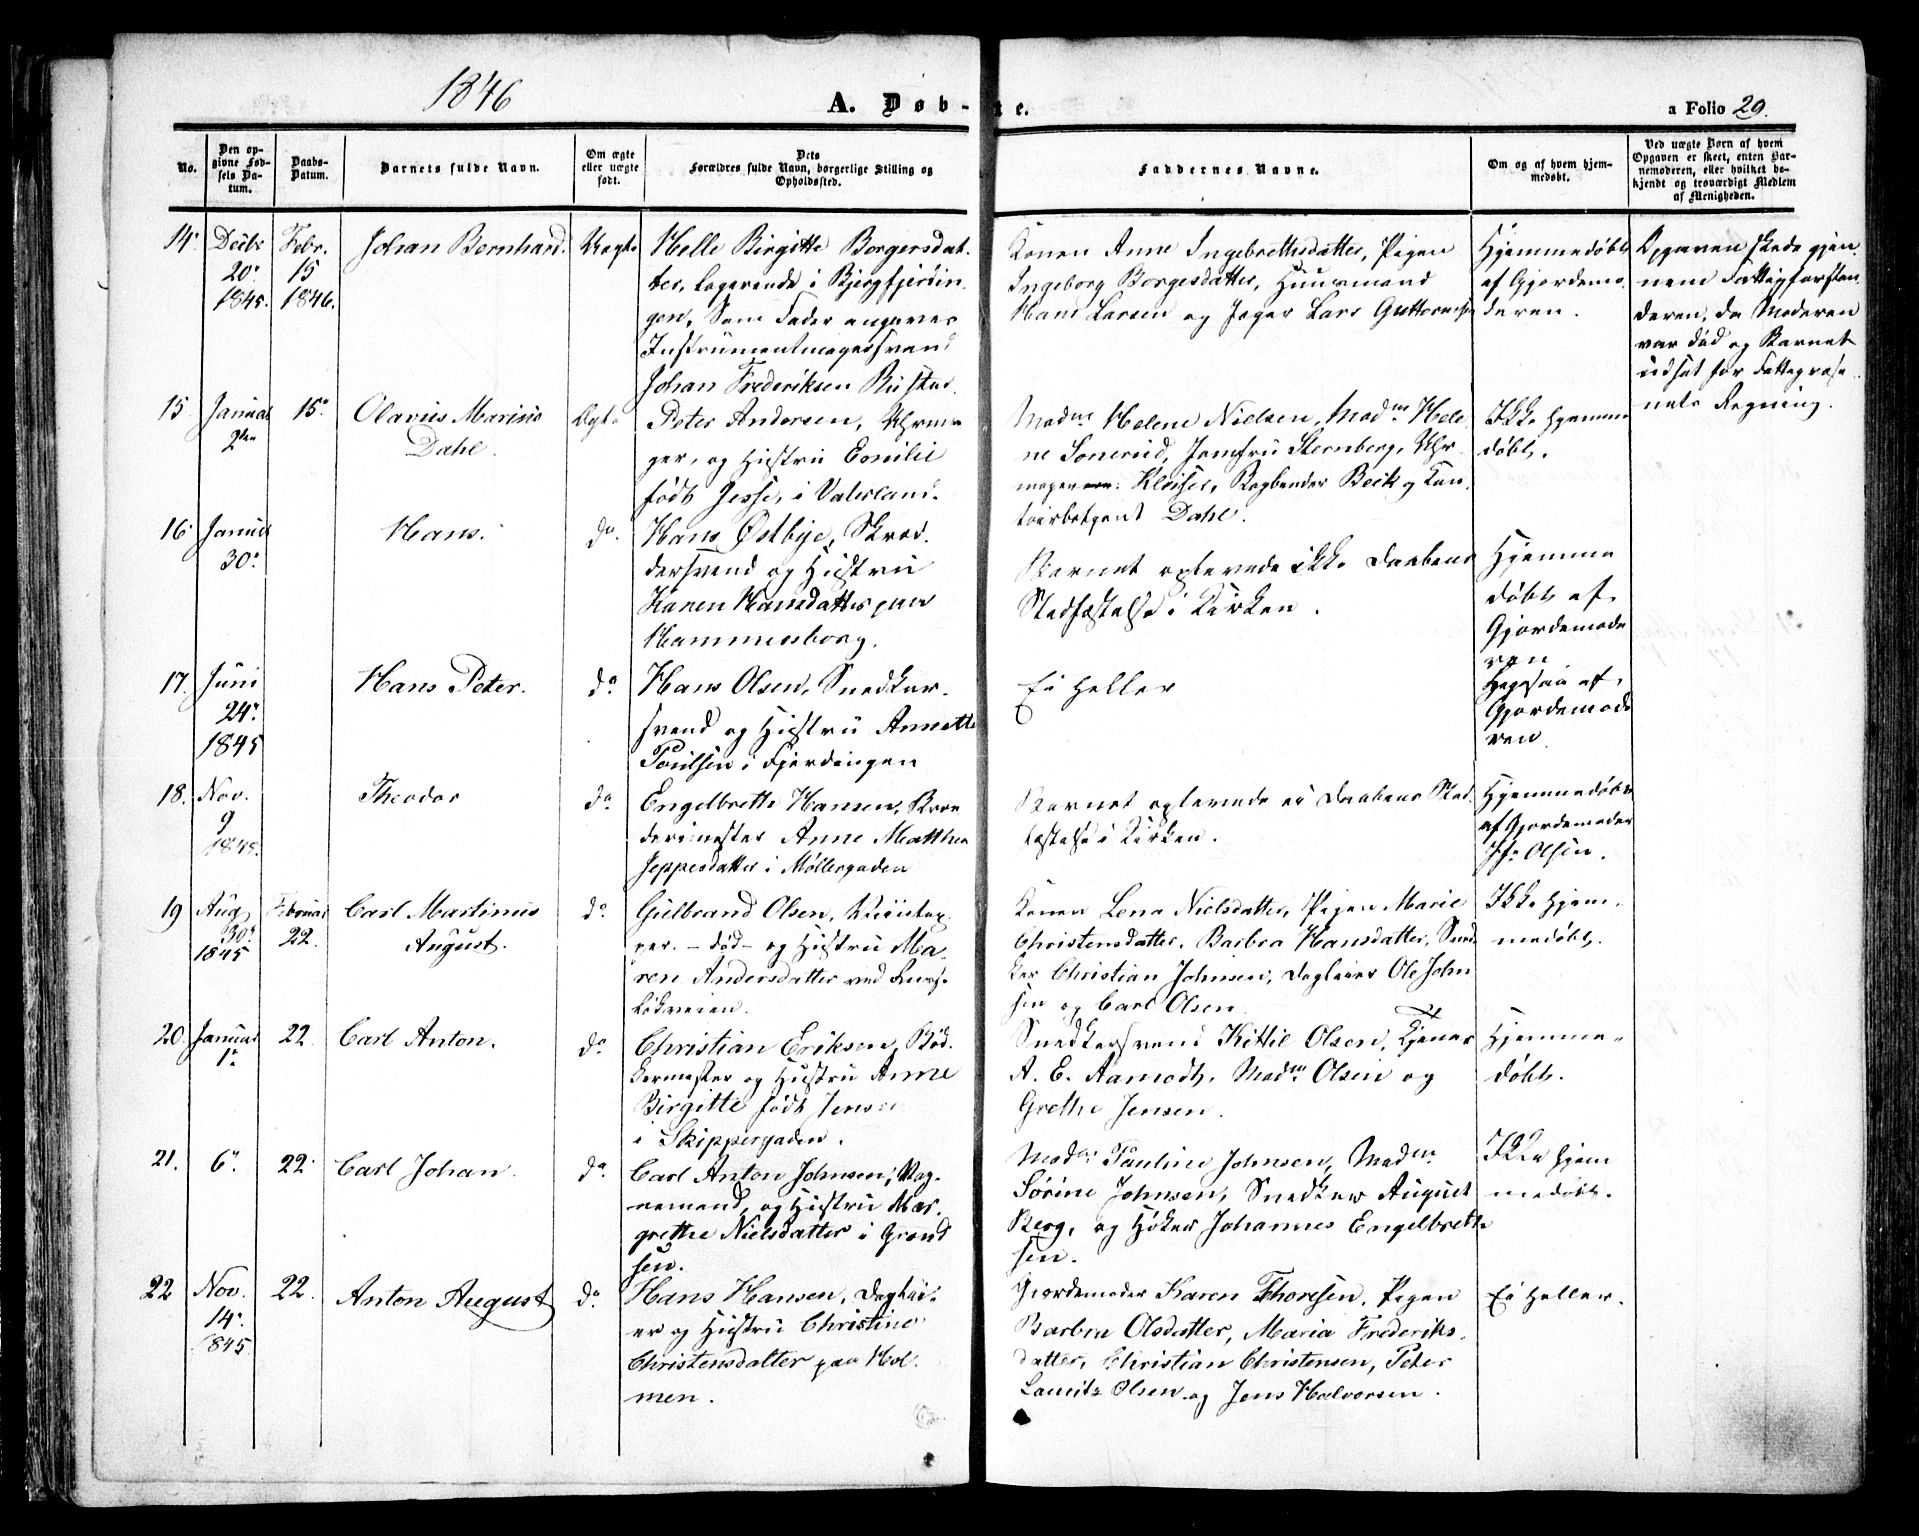 1846
A. Døb-te.
a Folio 29.
No.
Den op-
givne Fød-
sels Da-
tum.
Daabs-
Datum.
Barnets fulde Navn.
Om ægte
eller uægte
født.
Dets
Forældres fulde Navn, borgerlige Stilling og
Opholdssted.
Faddernes Navne.
Om og af hvem hjem-
medøbt.
Ved uægte Børn af hvem
Opgaven er skeet, enten Bar-
nemoderen, eller hvilket be-
kjendt og troværdigt Medlem
af Menigheden.
14.
Decbr
20.
1845.
Febr.
15
1846.
Johan Bernhard.
Uægte
Helle Birgitte Borgersdat-
ter, Logerende i Bjergfjerdin-
gen, Som Fader angives
Instrumentmagersvend
Johan Frederiksen Rustad
Konen Anne Ingebrethsdatter, Pigen
Ingeborg Borgesdatter, Huusmand
Hans Larsen og Jæger Lars Guttormsen
Hjemmedøbt
af Gjordemo
deren.
Opgaven skede gjen
nem Fattigforstan
deren, da Moderen
var død og Barnet
udsat for Fattigvæse
nets Regning.
15
Januar
2den
15.
Olavus Marius
Dahl.
Ægte
Peter Andersen, Uhrma
ger, og Hustru Emilie
født Jesse, i Vaterland.
Madme Helene Nielsen, Madm Hele
ne Sonerud, Jomfru Sternberg, Uhr
mager Kleiser, Bogbinder Beik og Con
toirbetjent Dahl.
Ikke hjemme
døbt.
16.
Januar
30.
Hans.
do.
Hans Østbye, Skræd.
dersvend og Hustru
Karen Hansdatter paa
Hammersborg.
Barnet oplevede ikke Daabens
Stadfæstelse i Kirken.
Hjemme
døbt af
Gjordemode
ren
17.
Juni
24.
1845
Hans Peter.
do.
Hans Olsen, Snedker.
svend og Hustru Annette
Poulsen i Fjerdingen
Ei heller
Ligesaa af
Gjordemode
ren
18.
Nov.
9
1845.
Theodor
do
Engelbreth Hansen,
dermester Anne Matthea
Jeppesdatter i Møllergaden
Barnet oplevede ei Daabens Stad
fæstelse i Kirken.
Hjemmedøbt
af Gjordemoder
Olsen.
19
Aug
30.
1845
Februar
22.
Carl Martinus
August.
do.
Gulbrand Olsen, Viintap
per. - død - og Hustru Ma-
ren Andersdatter ved Ruse-
løkveien.
Konen Lena Nielsdatter, Pigen Marie
Christensdatter, Barbra Hansdatter, Sned
ker Christian Johnsen, Dagleier Ole John
sen og Carl Olsen
Ikke hjem-
medøbt.
20.
Januar
1.
22.
Carl Anton.
do.
Christian Eriksen, Bød.
kermester og Hustru Anne
Birgitte født Jensen
i Skippergaden.
Snedkersvend Kittil Olsen, Tjener
A. E. Aamodt, Madm Olsen og
Grethe Jensen.
Hjemme-
døbt.
21.
6.
22.
Carl Johan
do.
Carl Anton Johnsen, Vog-
nemand, og Hustru Mar-
grethe Nielsdatter i Grønd
sen.
Madme Pauline Johnsen, Madme
Sørine Johnsen, Snedker August
Berg, og Høker Johannes Engelbreth
sen.
Ikke hjem
medøbt.
22
Nov.
14.
1845.
22.
Anton August
do.
Hans Hansen, Daglei-
er og Hustru Christine
Christensdatter paa Hol.
men.
Gjordemoder Karen Thoresen, Pigen
Barbra Olsdatter, Maria Frederiks.
datter, Christian Christensen, Peter
Lauritz Olsen og Jens Halvorsen.
Ei heller.